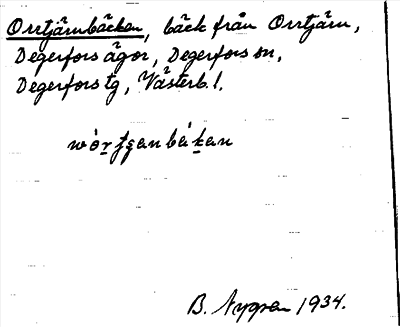 Orrtjärnbäcken, bäck från Orrtjärn,
Degerfors ägor, Degerfors sn,
Degerfors tg, Västerb. l.
B. Nygren 1934.